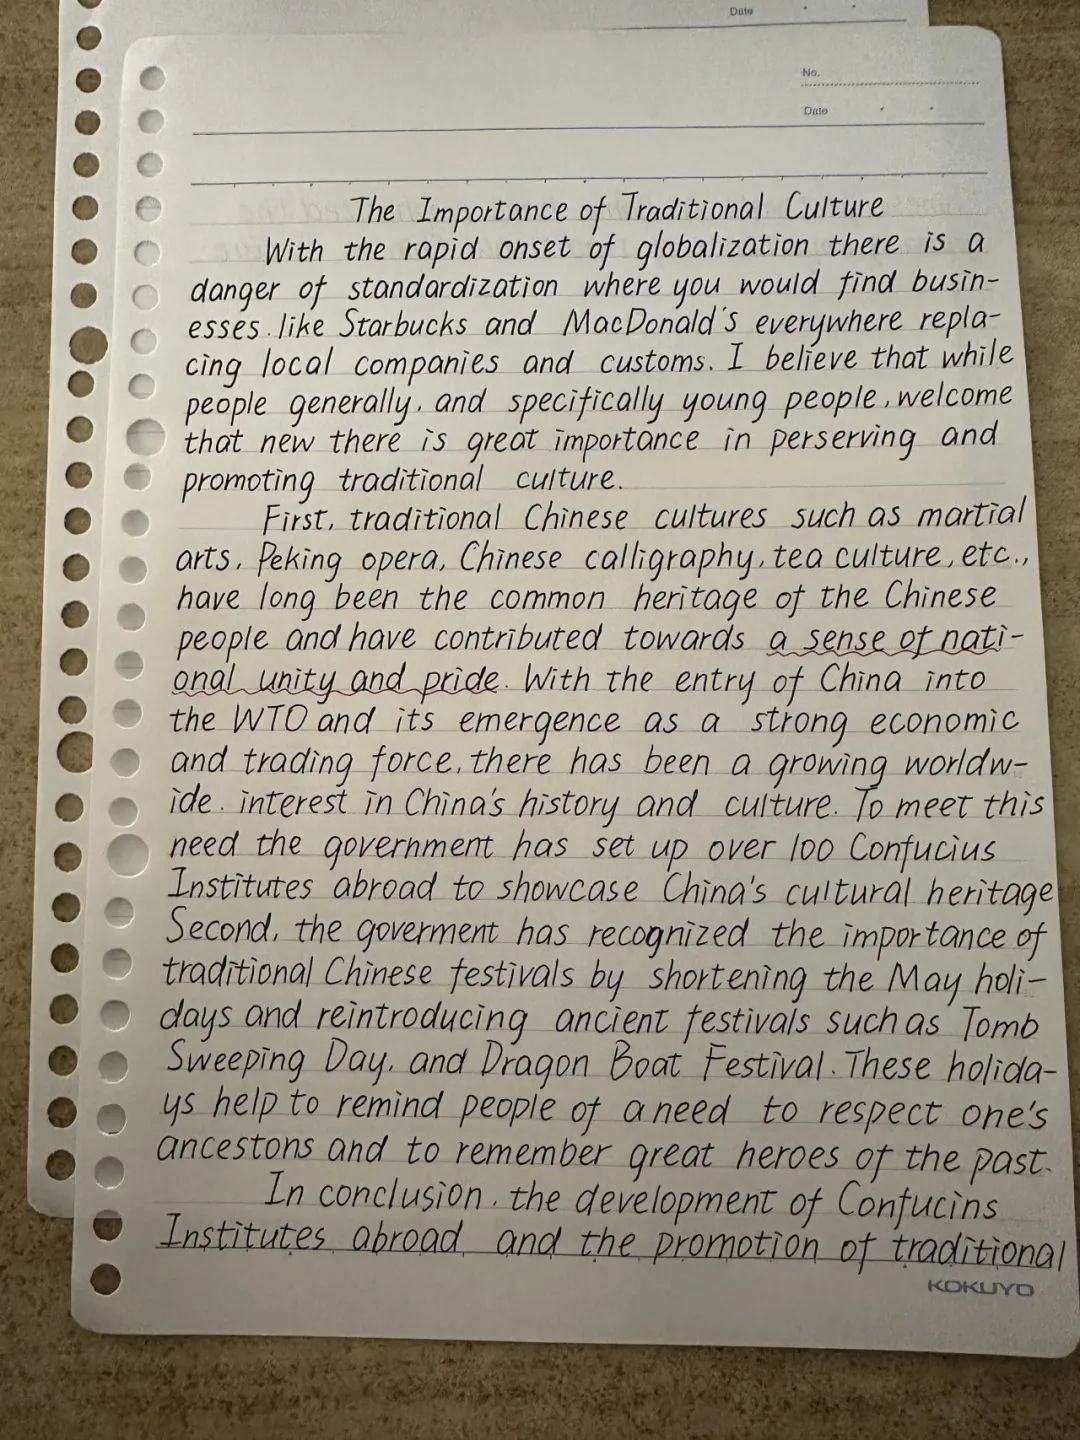 Date
No.
Date
The Importance of Traditional Culture
With the rapid onset of globalization there is a
danger of standardization where you would find busin-
esses. like Starbucks and MacDonald's everywhere repla-
cing local companies and customs. I believe that while
people generally, and specifically young people, welcome
that new there is great importance in perserving and
promoting traditional culture.
First, traditional Chinese cultures such as martial
arts, Peking opera, Chinese calligraphy, tea culture, etc.,
have long been the common heritage of the Chinese
people and have contributed towards a sense of nati-
onal unity and pride. With the entry of China into
the WTO and its emergence as a strong economic
and trading force, there has been a growing worldw-
ide. interest in China's history and culture. To meet this
need the government has set up over 100 Confucius
Institutes abroad to showcase China's cultural heritage
Second, the goverment has recognized the importance of
traditional Chinese festivals by shortening the May holi-
days and reintroducing ancient festivals such as Tomb
Sweeping Day, and Dragon Boat Festival. These holida-
ys help to remind people of a need to respect one's
ancestons and to remember great heroes of the past.
In conclusion, the development of Confucins
Institutes abroad and the promotion of traditional
KOKUYO